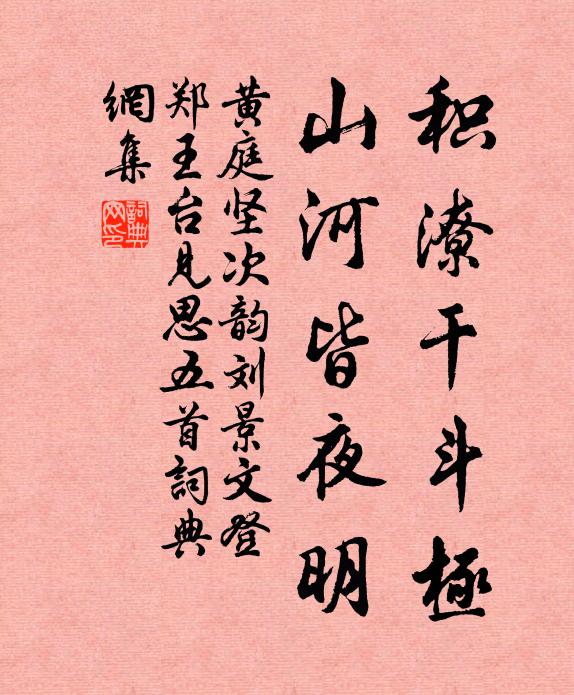 积潦干斗極
山河皆夜明
黄庭坚次韵刘景文登
郑王台见思五首詞典
網集
詞典網印